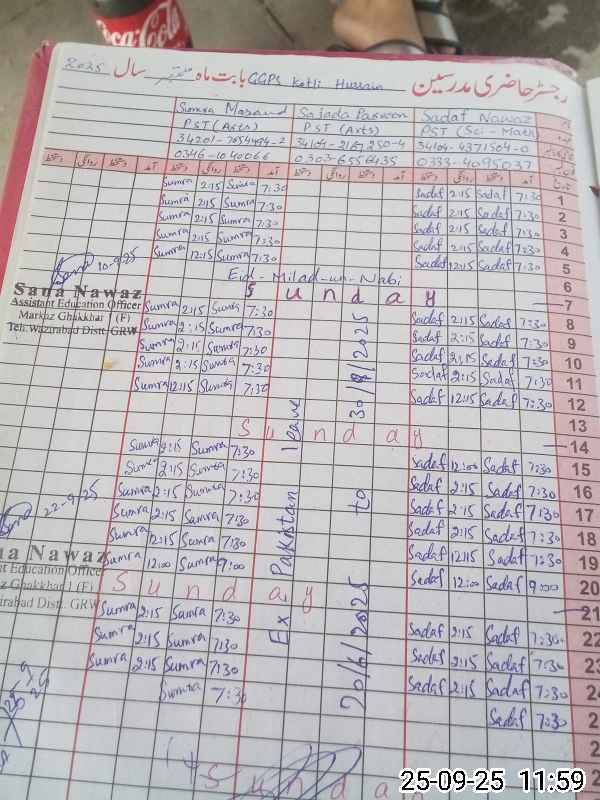 Coca-Cola
رجسٹر حاضری مدرسین GGPS Kotli Hussain بابت ماہ ستمبر سال 2025
Sumra Masand Sajada Parveen Sadaf Nawaz
PST (Arts) PST (Arts) PST (Sci-Math)
34104-4371504-0
0346-1040066 0303-6556435 0333-4095037
دستخط روانگی دستخط آمد دستخط روانگی دستخط آمد دستخط روانگی دستخط آمد
Sumra 2:15 Sumra 7:30 Sadaf 2:15 Sadaf 7:30 1
Sumra 2:15 Sumra 7:30 Sadaf 2:15 Sadaf 7:30 2
Sumra 2:15 Sumra 7:30 Sadaf 2:15 Sadaf 7:30 3
Sumra 2:15 Sumra 7:30 Sadaf 2:15 Sadaf 7:30 4
Sumra 12:15 Sumra 7:30 Sadaf 12:15 Sadaf 7:30 5
Eid-Milad-un-Nabi 6
Sunday 7
10-9-25
Sana Nawaz
Assistant Education Officer
Markaz Ghakkhar 1 (F)
Teh: Wazirabad Distt: GRW
Sumra 2:15 Sumra 7:30 Sadaf 2:15 Sadaf 7:30 8
Sumra 2:15 Sumra 7:30 Sadaf 2:15 Sadaf 7:30 9
Sumra 2:15 Sumra 7:30 Sadaf 2:15 Sadaf 7:30 10
Sumra 2:15 Sumra 7:30 Sadaf 2:15 Sadaf 7:30 11
Sumra 12:15 Sumra 7:30 Sadaf 12:15 Sadaf 7:30 12
13
Sunday 14
Sumra 2:15 Sumra 7:30 Sadaf 12:00 Sadaf 7:30 15
Sumra 2:15 Sumra 7:30 Sadaf 2:15 Sadaf 7:30 16
Sumra 2:15 Sumra 7:30 Sadaf 2:15 Sadaf 7:30 17
Sumra 2:15 Sumra 7:30 Sadaf 2:15 Sadaf 7:30 18
Sumra 12:15 Sumra 7:30 Sadaf 12:15 Sadaf 7:30 19
Sumra 12:00 Sumra 9:00 Sadaf 12:00 Sadaf 9:00 20
Sunday 21
22-9-25
na Nawaz
Education Office
Ghakkhar 1 (F)
irabad Distt: GRW
Sumra 2:15 Sumra 7:30 Sadaf 2:15 Sadaf 7:30 22
Sumra 2:15 Sumra 7:30 Sadaf 2:15 Sadaf 7:30 23
Sumra 2:15 Sumra 7:30 Sadaf 2:15 Sadaf 7:30 24
Sumra 7:30 Sadaf 7:30 2
Ex Pakistan leave
20/6/2025 to 30/9/2025
Sunda
25-09-25 11:59